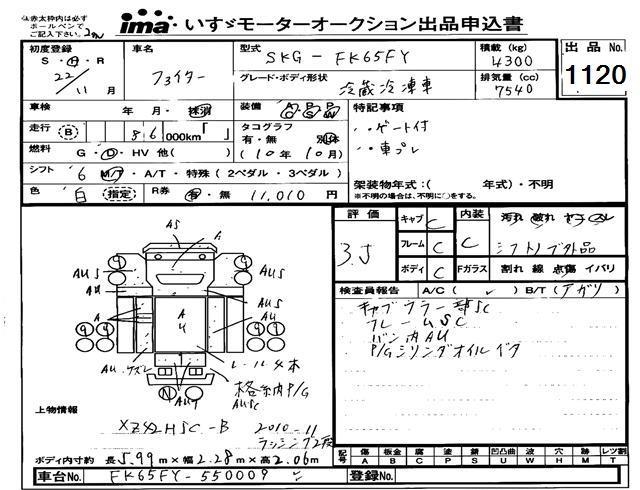 ☆赤太枠内は必ず
ボールペンで
ご記入下さい
ima いすゞモーターオークション出品申込書
初度登録 S・H・R 22年 11月
車名 ファイター
型式 SKG-FK65FY
グレード・ボディ形状 冷蔵冷凍車
積載 (kg) 4300
排気量 (cc) 7540
出品 No. 1120
車検 年 月・抹消
装備 A/C P/S P/W
特記事項
・・ゲート付
・・車プレ
走行 B 86,000km「 」
タコグラフ 有・無
(10年10月)
燃料 G・D・HV 他( )
シフト 6 M/T・A/T・特殊(2ペダル・3ペダル)
色 白 指定 R券 有・無 11,010円
架装物年式:( 年式)・不明
※不明の場合は、不明に○をする。
評価 3.5
キャブ C
フレーム C
ボディ C
内装 C 汚れ 破れ ヤケ スレ
シフトノブ外品
Fガラス 割れ 線 点傷 イバリ
検査員報告 A/C( ✓ ) B/T(アガリ)
キャブウラ一部SC
フレームSC
バン内AU
P/Gシリンダオイルイタ
AS
A
AUS
AUS
AU
AU
A
AU
AU
レール4本
AU.サズレ
格納P/G
AUSC
AU
上物情報
XZ42HSC-B 2010-11
ラッシング2段
ボディ内寸約 長5.99m×巾2.28m×高2.06m
記号 傷 A 板金 B 腐 C 塗 P 錆 S 凹凸曲 U 波 W 穴 H 跡 M レツ割 T
車台No. FK65FY-550009
登録No.